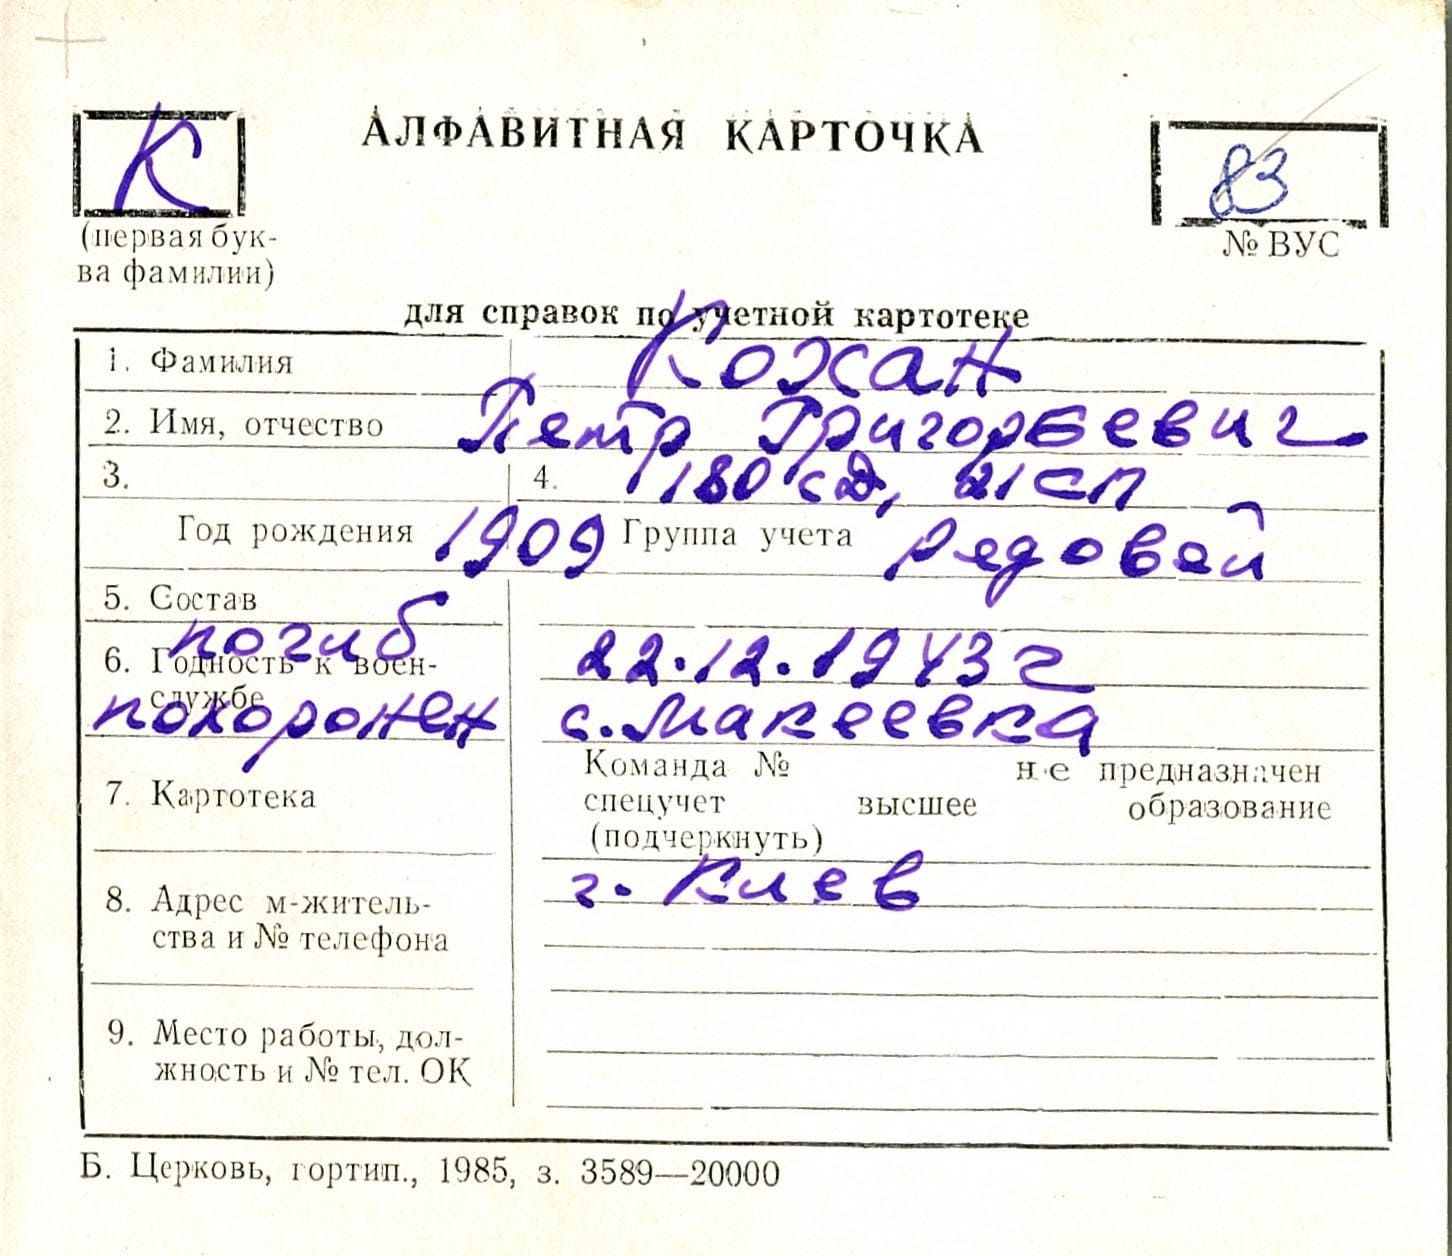 К
АЛФАВИТНАЯ КАРТОЧКА
83
(первая бук-
ва фамилии)
№ ВУС
для справок по учетной картотеке
1. Фамилия Кохан
2. Имя, отчество Петр Григорьевич
3. 4. 180 сд, 21 сп
Год рождения 1909 Группа учета рядовой
5. Состав
погиб 22.12.1943 г
6. Годность к воен-
службе
похоронен с. Макеевка
Команда № не предназначен
7. Картотека
спецучет высшее образование
(подчеркнуть)
г. Киев
8. Адрес м-житель-
ства и № телефона
9. Место работы, дол-
жность и № тел. ОК
Б. Церковь, гортип., 1985, з. 3589—20000